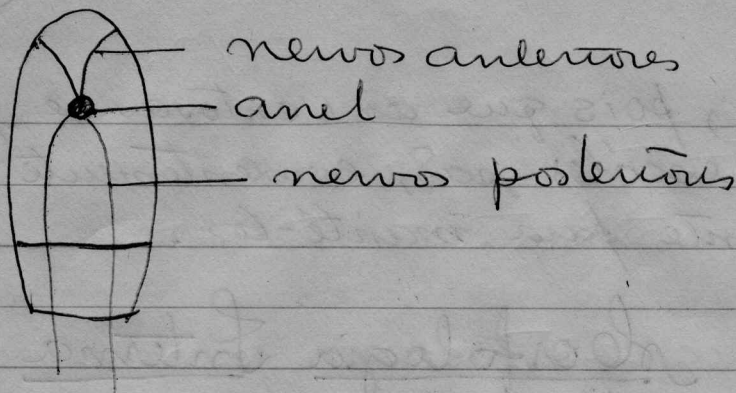 nervos anteriores
anel
nervos posteriores